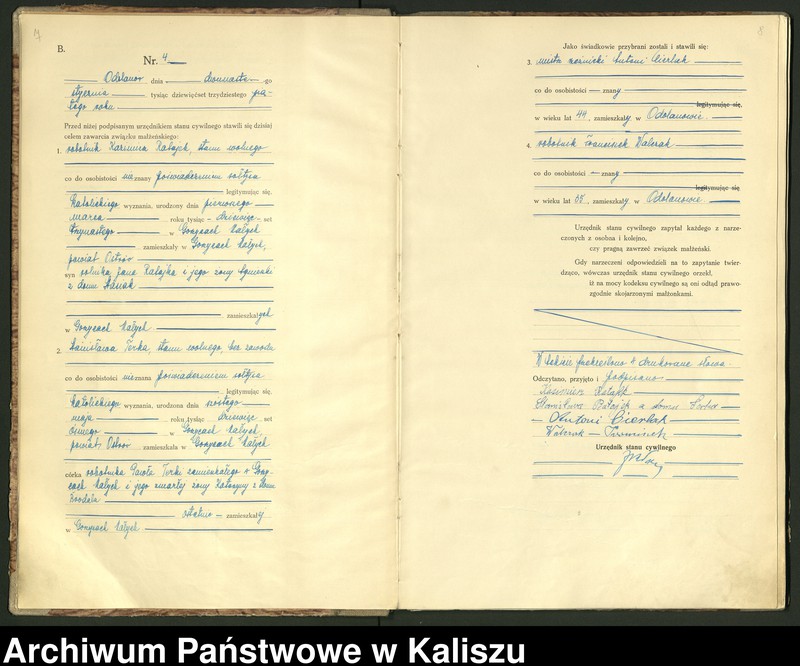 B.
Nr. 4
Odolanów dnia dwunasto-go
stycznia tysiąc dziewięćset trzydziestego pią-
tego roku
Przed niżej podpisanym urzędnikiem stanu cywilnego stawili się dzisiaj
celem zawarcia związku małżeńskiego:
1. robotnik Kazimierz Ratajek, stanu wolnego
co do osobistości nieznany poświadczeniem sołtysa
legitymując się,
katolickiego wyznania, urodzony dnia pierwszego
marca roku tysiąc - dziewięć- set
trzynastego w Gorzycach Małych
zamieszkały w Gorzycach Małych,
powiat Ostrów
syn rolnika Jana Ratajka i jego żony Agnieszki
z domu
zamieszkałych
w Gorzycach Małych
2. Stanisława Terka, stanu wolnego, bez zawodu
co do osobistości nieznana poświadczeniem sołtysa
legitymując się,
katolickiego wyznania, urodzona dnia szóstego
maja roku tysiąc dziewięć- set
ósmego w Gorzycach Małych,
powiat Ostrów zamieszkała w Gorzycach Małych
córka robotnika Pawła Terki zamieszkałego w Gorzy-
cach Małych i jego zmarłej żony Katarzyny z domu
ostatnio - zamieszkały
w Gorzycach Małych
8
Jako świadkowie przybrani zostali i stawili się:
3. mistrz rzeźnicki Antoni Bierłak
co do osobistości — znany
legitymując się,
w wieku lat 44, zamieszkały w Odolanowie
4. robotnik Franciszek Walczak
co do osobistości — znany
legitymując się
w wieku lat 55, zamieszkały w Odolanowie
Urzędnik stanu cywilnego zapytał każdego z narze-
czonych z osobna i kolejno,
czy pragną zawrzeć związek małżeński.
Gdy narzeczeni odpowiedzieli na to zapytanie twier-
dząco, wówczas urzędnik stanu cywilnego orzekł,
iż na mocy kodeksu cywilnego są oni odtąd prawo-
zgodnie skojarzonymi małżonkami.
W tekście przekreślono 4 drukowane słowa.
Odczytano, przyjęto i podpisano
Kazimierz Ratajek
Stanisława Ratajek z domu Terka
Antoni Bierłak
Walczak Franciszek
Urzędnik stanu cywilnego
Archiwum Państwowe w Kaliszu